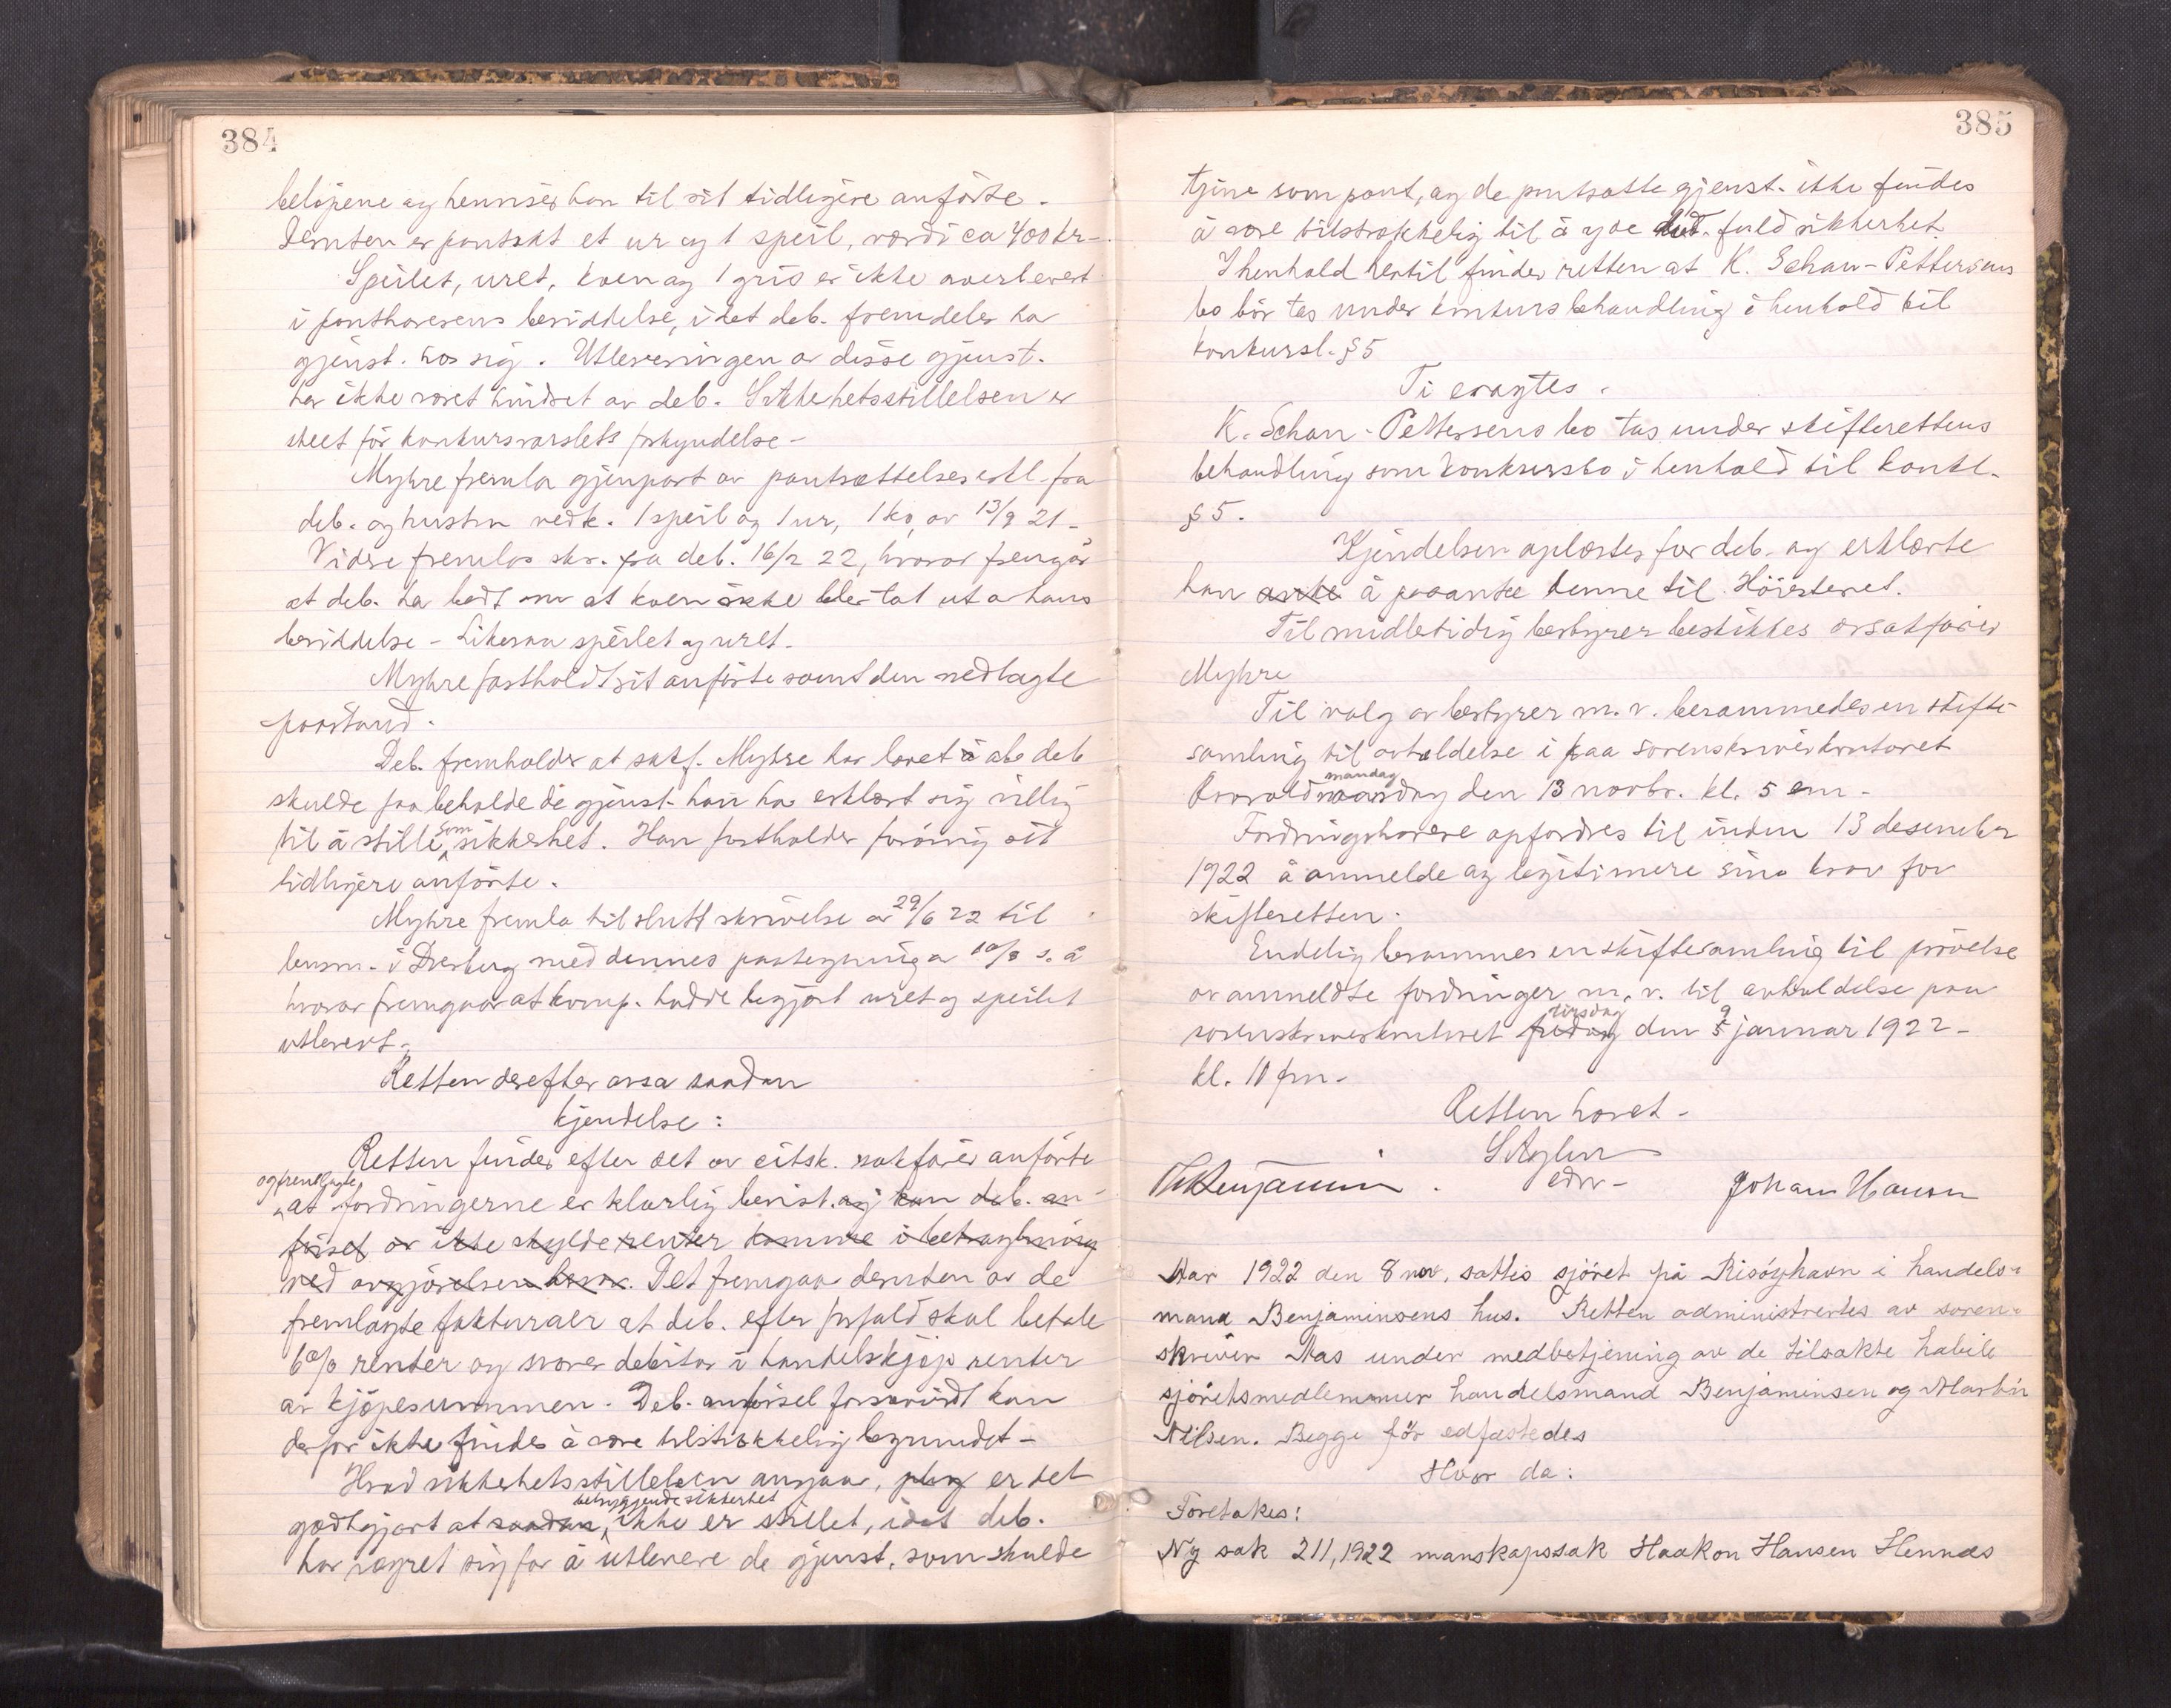 384
beløpene og henviser han til sit tidligere anförte.
Desuten er pantsat et ur og 1 speil, værdi ca 400 kr-
Speilet, uret, kuen og 1 gris er ikke overlevert
i panthaverens besiddelse, idet deb. fremdeles har
gjenst. hos sig. Utleveringen av disse gjenst.
har ikke været hindret av deb. Sikkehetsstillelsen er
skeet för konkursvarslets forkyndelse -
Myhre fremla gjenpart av pantsættelseserkl. fra
deb. og hustru vedk. 1 speil og 1 ur, 1 ko, av 13/9 21-
Videre fremlas skr. fra deb. 16/2 22, hvorav fremgår
at deb. har bedt om at kuen ikke blir tat ut av hans
besiddelse - Likesaa speilet og uret.
Myhre fastholdt sit anförte samt den nedlagte
paastand.
Deb. fremholder at sakf. Myhre har lovet å at deb
skulde faa beholde de gjenst. han har erklært sig villig
til å stille som sikkerhet. Han fastholder forövrig sit
tidligere anförte.
Myhre fremla til slutt skrivelse av 29/6 22 til
lensm. i Dverberg med dennes paategning av 10/8 s. å
hvorav fremgaar at komp. hadde begjært uret og speilet
utlevert.
Retten derefter avsa saadan
kjendelse:
Retten finder efter det av citsk. sakförer anförte
og fremlagte
at fordringerne er klarlig bevist. og kan deb. an-
försel om ikke skylde renter komme i betragtning
ved avgjörelsen herav. Det fremgaar desuten av de
fremlagte fakturaer at deb. efter forfald skal betale
6% renter og svarer debitor i handelskjøp renter
av kjøpesummen. Deb. anförsel forsaavidt kan
derfor ikke findes å være tilstrækkelig begrundet -
Hvad sikkerhetsstillelsen angaar, er det
betryggende sikkerhet
godtgjort at saadan, ikke er stillet, idet deb.
har vægret sig for å utlevere de gjenst. som skulde
385
tjene som pant, og de pantsatte gjenst. ikke findes
å være tilstrækkelig til å yde fuld sikkerhet
I henhold hertil finder retten at K. Schau-Pettersens
bo bör tas under konkursbehandling i henhold til
konkursl. § 5
Ti eragtes.
K. Schau-Pettersens bo tas under skifterettens
behandling som konkursbo i henhold til konkl.
§ 5.
Kjendelsen oplæstes for deb. og erklærte
han anke å paaanke denne til Höiesteret.
Til midlertidig bestyrer beskikkes orsakförer
Myhre
Til valg av bestyrer m. v. berammedes en skifte-
samling til avholdelse i paa sorenskriverkontoret
mandag
den 13 novbr. kl. 5 em -
Fordringshavere opfordres til inden 13 desember
1922 å anmelde og legitimere sine krav for
skifteretten.
Endelig berammes en skiftesamling til prövelse
av anmeldte fordringer m. v. til avholdelse paa
tirsdag 9
sorenskriverkontoret fredag den 5 januar 1922-
kl. 11 fm-
Retten hævet -
edsv-
Johan Hansen
Aar 1922 den 8 nov. sattes sjöret på Risöyhavn i handels-
mand Benjaminsens hus. Retten administrertes av soren-
skriver Aas under medbetjening av de tilsakte habile
sjöretsmedlemmer handelsmand Benjaminsen og Martin
Nilsen. Begge för edfæstedes
Hvor da:
Foretakes:
Ny sak 211, 1922 manskapssak Haakon Hansen Hennæs